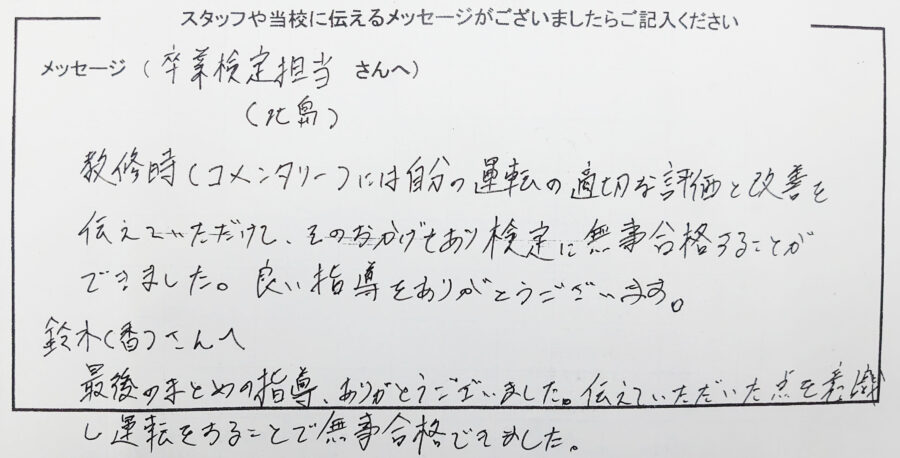 スタッフや当校に伝えるメッセージがございましたらご記入ください
メッセージ（卒業検定担当 さんへ）
（北島）
教修時（コメンタリー）には自分の運転の適切な評価と改善を
伝えていただけて、そのおかげもあり検定に無事合格することが
できました。良い指導をありがとうございます。
鈴木（香）さんへ
最後のまとめの指導、ありがとうございました。伝えていただいた点を意識
し運転をすることで無事合格できました。